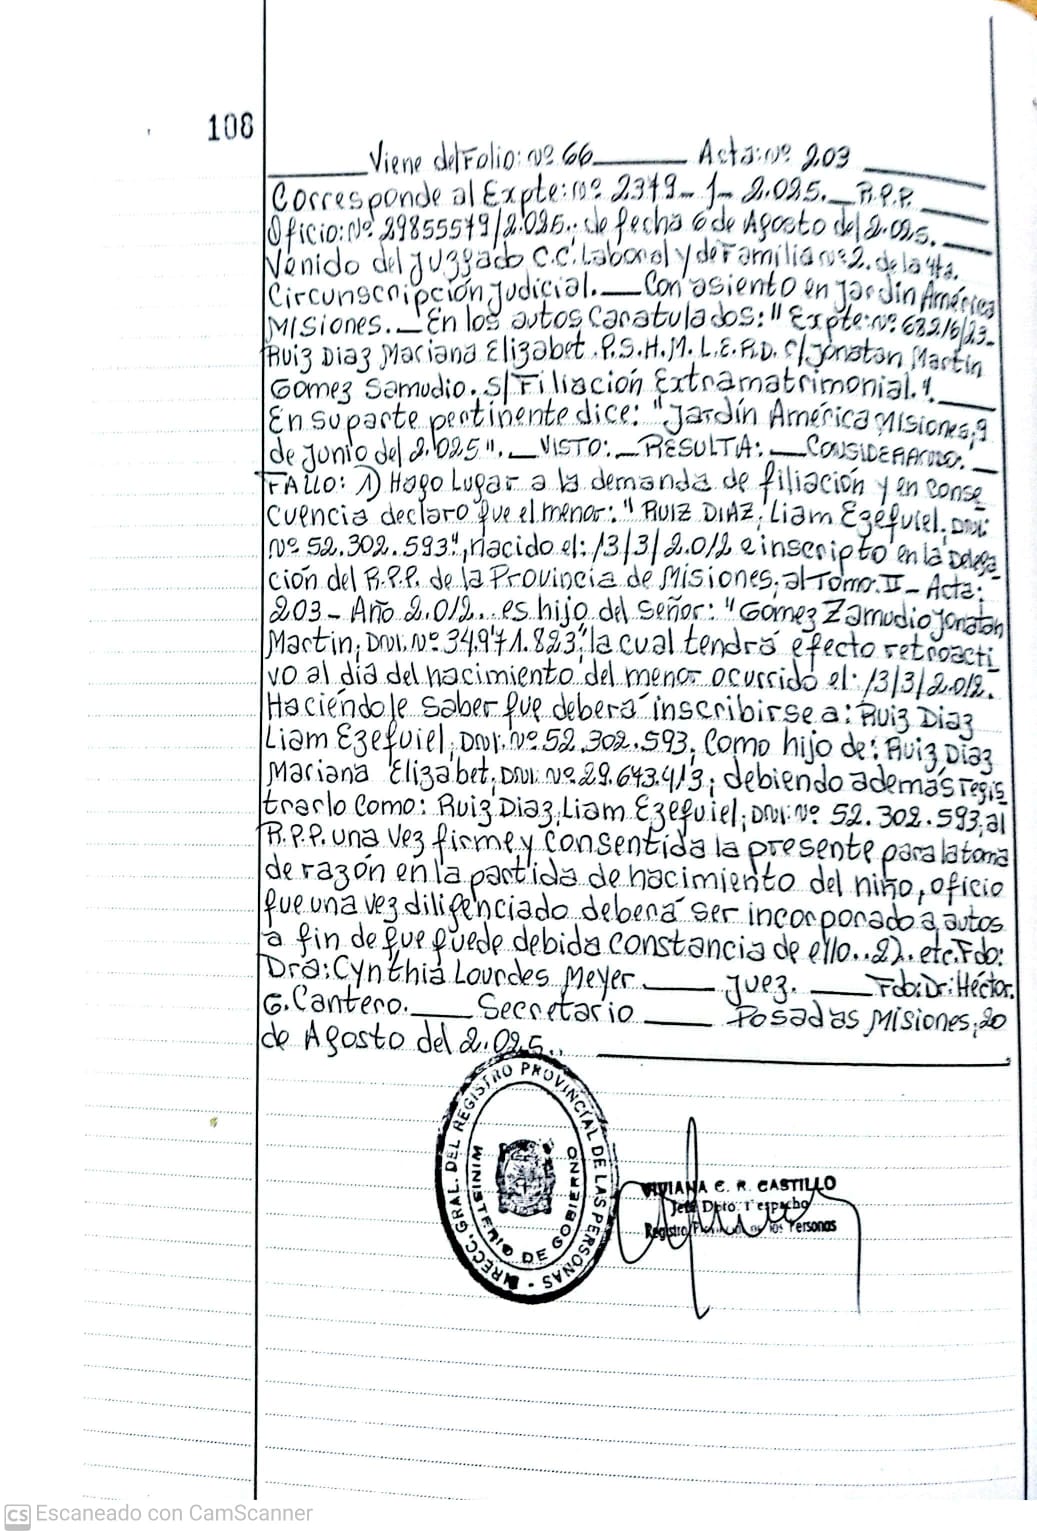 108
Viene del Folio: Nº 66 Acta: Nº 203
Corresponde al Expte: Nº 2379-1-2.025. R.P.P.
Oficio: Nº 29855579/2.025. de fecha 6 de Agosto del 2.025.
Venido del Juzgado C.C. Laboral y de Familia Nº 2. de la 4ta.
Circunscripción Judicial. Con asiento en Jardín América
Misiones. En los autos Caratulados: "Expte: Nº 682/6/23.
Ruiz Diaz Mariana Elizabet. P.S.H.M.L.E.R.D. C/ Jonatan Martin
Gomez Samudio. S/ Filiación Extramatrimonial."
En su parte pertinente dice: "Jardín América Misiones, 9
de Junio del 2.025". VISTO: RESULTA: CONSIDERANDO:
FALLO: 1) Hago Lugar a la demanda de filiación y en conse
cuencia declaro que el menor: "RUIZ DIAZ, Liam Ezequiel, DNI:
Nº 52.302.593", nacido el: 13/3/2.012 e inscripto en la Delega
ción del R.P.P. de la Provincia de Misiones, al Tomo: II - Acta:
203 - Año 2.012.. es hijo del señor: "Gomez Zamudio Jonatan
Martin, DNI. Nº 34.971.823", la cual tendrá efecto retroacti
vo al día del nacimiento del menor ocurrido el: 13/3/2.012.
Haciéndole saber que deberá inscribirse a: Ruiz Diaz
Liam Ezequiel, DNI. Nº 52.302.593, como hijo de: Ruiz Diaz
Mariana Elizabet, DNI: Nº 29.643.413; debiendo además regis
trarlo como: Ruiz Diaz, Liam Ezequiel, DNI: Nº 52.302.593, al
R.P.P. una vez firme y consentida la presente para la toma
de razón en la partida de nacimiento del niño, oficio
que una vez diligenciado deberá ser incorporado a autos
a fin de que quede debida constancia de ello.. 2). etc. Fdo:
Dra: Cynthia Lourdes Meyer Juez. Fdo: Dr: Héctor.
G. Cantero. Secretario Posadas Misiones, 20
de Agosto del 2.025..
DIRECC. GRAL. DEL REGISTRO PROVINCIAL DE LAS PERSONAS -
MINISTERIO DE GOBIERNO
VIVIANA C. R. CASTILLO
Jefa Dpto. Despacho
Registro Provincial de las Personas
CS Escaneado con CamScanner